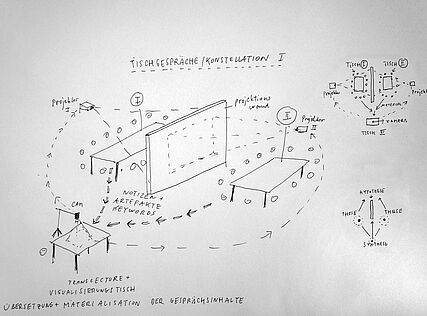 TISCHGESPRÄCHE/KONSTELLATION I
Projektor
I
I
projektions
wand
II
Projektor
II
NOTIZEN +
ARTEFAKTE
KEYWORDS
CAM
TRANSLECTURE +
VISUALISIERUNGSTISCH
ÜBERSETZUNG + MATERIALISATION DER GESPRÄCHSINHALTE
TISCH I
TISCH II
Projektor
Projektor
KAMERA
TISCH III
HYPOTHESE
THESE
THESE
SYNTHESE